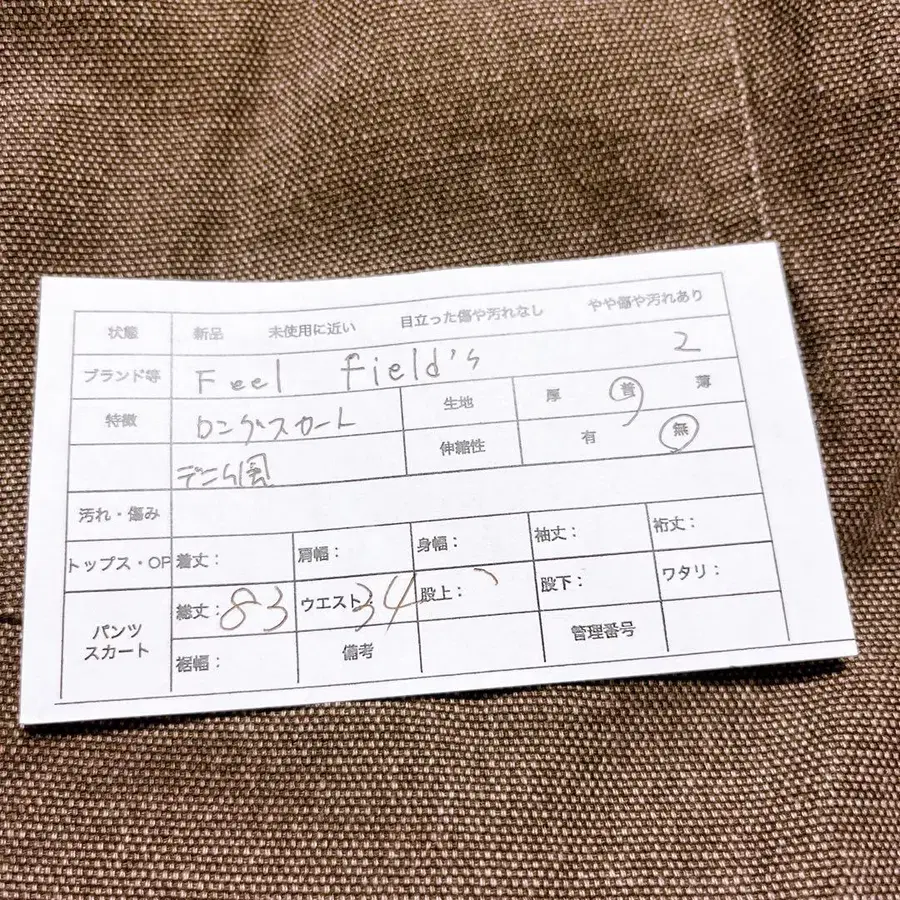 状態 新品 未使用に近い 目立った傷や汚れなし やや傷や汚れあり
ブランド等 Feel field's 2
特徴 ロングスカート 生地 厚 普 薄
デニム風 伸縮性 有 無
汚れ・傷み
トップス・OP 着丈: 肩幅: 身幅: 袖丈: 裄丈:
パンツ スカート 総丈:83 ウエスト:34 股上: 股下: ワタリ:
裾幅: 備考 管理番号